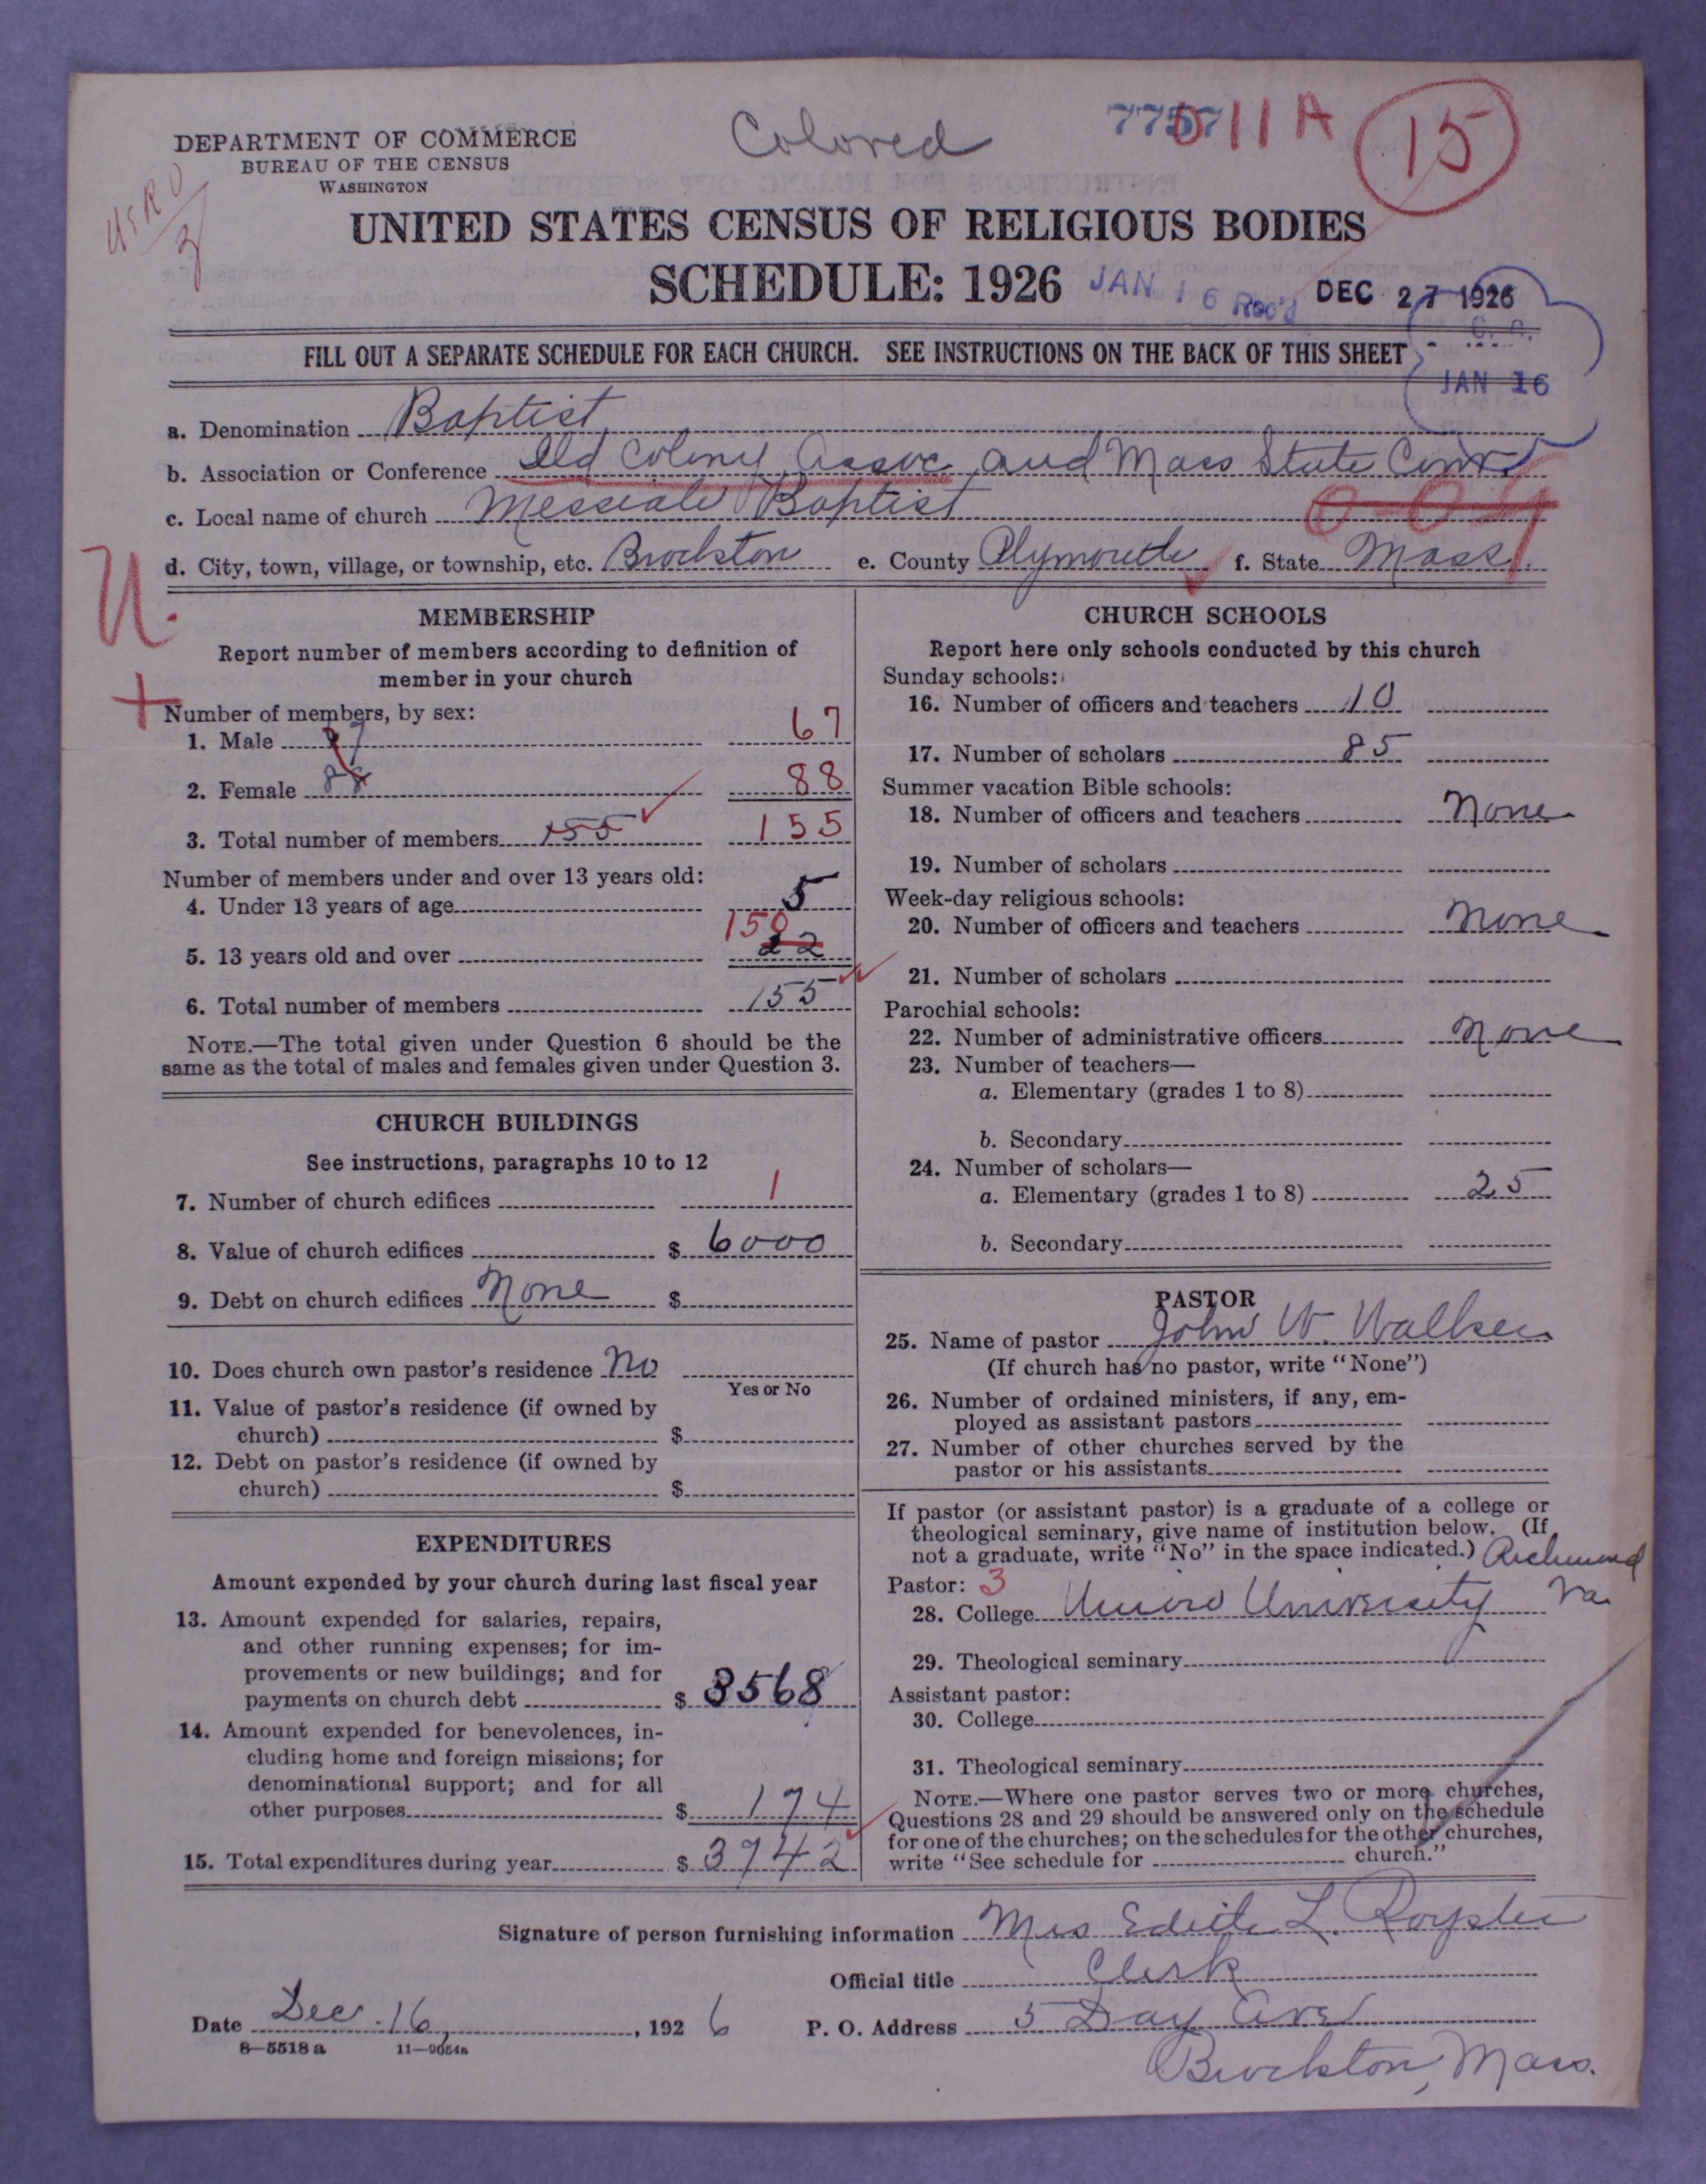 DEPARTMENT OF COMMERCE
BUREAU OF THE CENSUS
WASHINGTON
Colored
7757 11 A
15
UNITED STATES CENSUS OF RELIGIOUS BODIES
SCHEDULE: 1926
JAN 16 Rec'd DEC 27 1926
JAN 16
FILL OUT A SEPARATE SCHEDULE FOR EACH CHURCH. SEE INSTRUCTIONS ON THE BACK OF THIS SHEET
a. Denomination Baptist
b. Association or Conference Old Colony Assoc and Mass State Conv
c. Local name of church Messiah Baptist
d. City, town, village, or township, etc. Brockton e. County Plymouth f. State Mass.
U.
+
MEMBERSHIP
Report number of members according to definition of
member in your church
Number of members, by sex:
1. Male 67
2. Female 88 88
3. Total number of members 155 155
Number of members under and over 13 years old:
4. Under 13 years of age 5
5. 13 years old and over 150 22
6. Total number of members 155
NOTE.—The total given under Question 6 should be the
same as the total of males and females given under Question 3.
CHURCH BUILDINGS
See instructions, paragraphs 10 to 12
7. Number of church edifices 1
8. Value of church edifices $ 6000
9. Debt on church edifices None $
10. Does church own pastor's residence No
Yes or No
11. Value of pastor's residence (if owned by
church) $
12. Debt on pastor's residence (if owned by
church) $
EXPENDITURES
Amount expended by your church during last fiscal year
13. Amount expended for salaries, repairs,
and other running expenses; for im-
provements or new buildings; and for
payments on church debt $ 3568
14. Amount expended for benevolences, in-
cluding home and foreign missions; for
denominational support; and for all
other purposes $ 174
15. Total expenditures during year $ 3742
CHURCH SCHOOLS
Report here only schools conducted by this church
Sunday schools:
16. Number of officers and teachers 10
17. Number of scholars 85
Summer vacation Bible schools:
18. Number of officers and teachers None
19. Number of scholars
Week-day religious schools:
20. Number of officers and teachers None
21. Number of scholars
Parochial schools:
22. Number of administrative officers None
23. Number of teachers—
a. Elementary (grades 1 to 8)
b. Secondary
24. Number of scholars—
a. Elementary (grades 1 to 8) 25
b. Secondary
PASTOR
25. Name of pastor John W. Walker
(If church has no pastor, write "None")
26. Number of ordained ministers, if any, em-
ployed as assistant pastors
27. Number of other churches served by the
pastor or his assistants
If pastor (or assistant pastor) is a graduate of a college or
theological seminary, give name of institution below. (If
not a graduate, write "No" in the space indicated.) Richmond
Pastor: 3
28. College Union University Va.
29. Theological seminary
Assistant pastor:
30. College
31. Theological seminary
NOTE.—Where one pastor serves two or more churches,
Questions 28 and 29 should be answered only on the schedule
for one of the churches; on the schedules for the other churches,
write "See schedule for church."
Signature of person furnishing information Mrs Edith L. Royster
Official title Clerk
Date Dec. 16, 1926 P. O. Address 5 Day Ave
Brockton, Mass.
8—5518 a 11—9054a